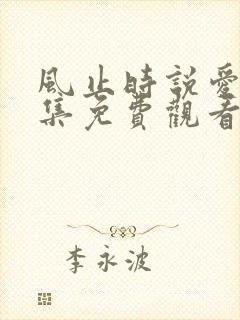 風止時說愛
集免費觀看
李永波